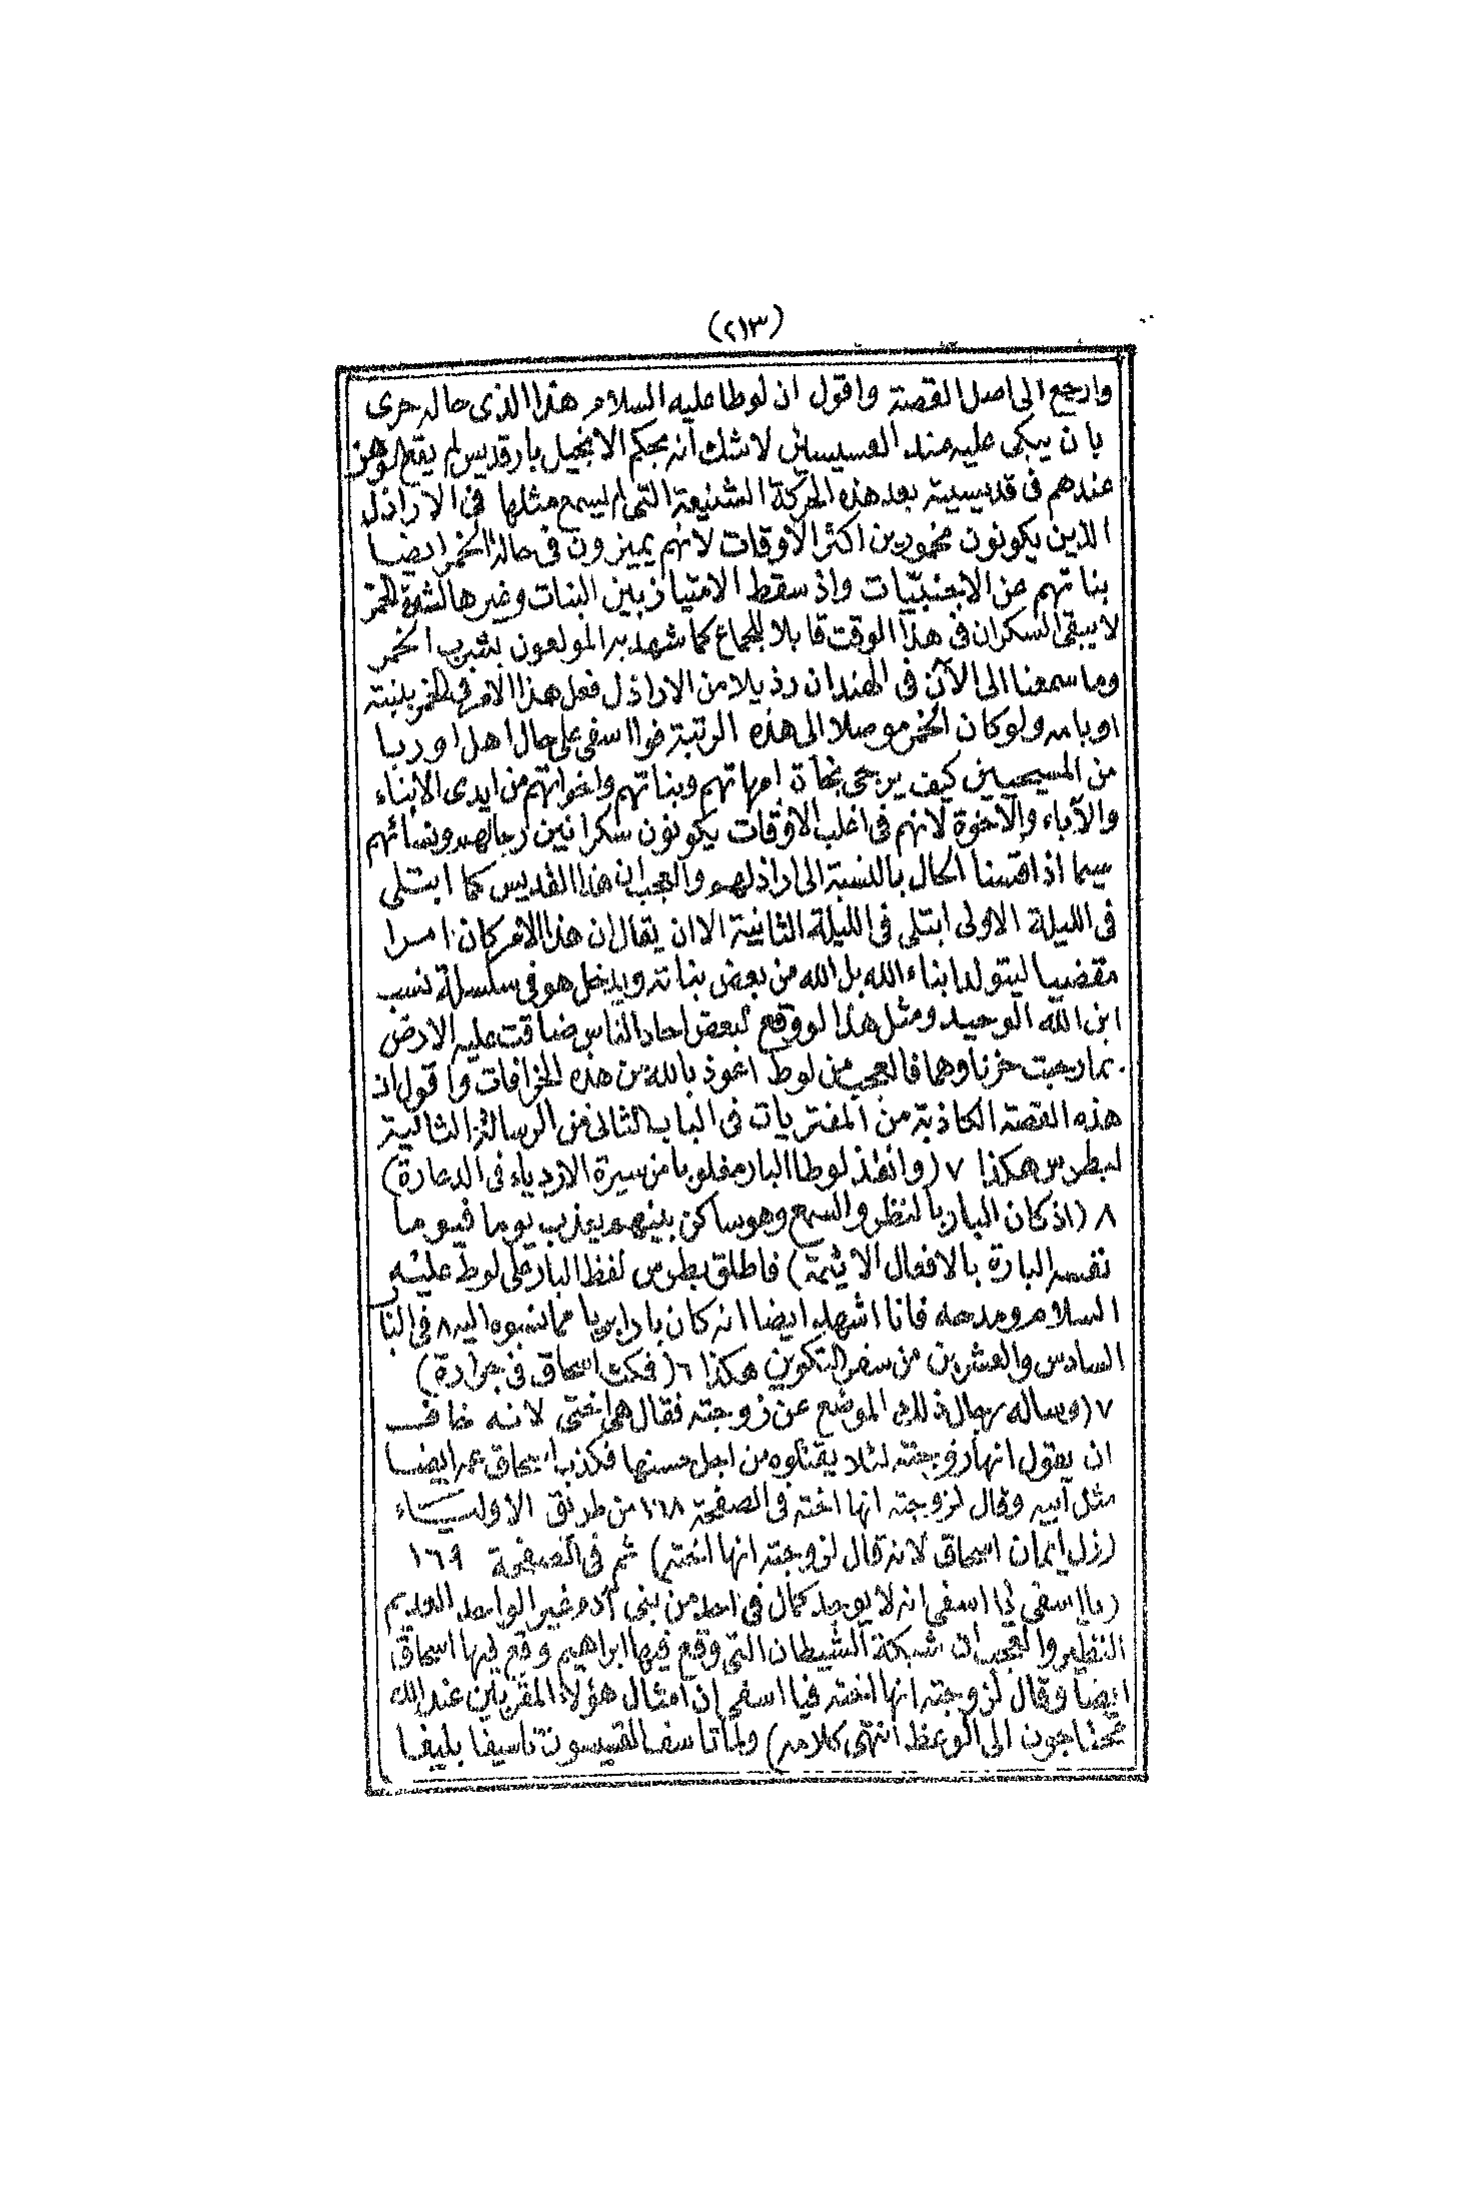 (٢١٣)
وارجع الى اصل القصة واقول ان لوطا عليه السلام هذا الذى حاله حرى
بان يبكى عليه عند القسيسين لا شك انه بحكم الانجيل بار قديس لم يقع الوهن
عندهم فى قدسيته بعد هذه الحركة الشنيعة التى لم يسمع مثلها فى الاراذل
الذين يكونون مخمورين اكثر الاوقات لانهم يميزون فى حالة الخمر ايضا
بناتهم من الاجنبيات واذ سقط الامتياز بين البنات وغيرها لشدة الخمر
لا يبقى السكران فى هذا الوقت قابلا للجماع كما شهد به المولعون بشرب الخمر
وما سمعنا الى الآن فى الهند ان رذيلا من الاراذل فعل هذا الامر فى الخمر ببنته
او بامه ولو كان الخمر موصلا الى هذه الرتبة فوااسفى على حال اهل اوربا
من المسيحيين كيف يرجى نجاة امهاتهم وبناتهم واخواتهم من ايدى الابناء
والآباء والاخوة لانهم فى اغلب الاوقات يكونون سكرانين رجالهم ونسائهم
سيما اذا قسنا الحال بالنسبة الى اراذلهم والعجب ان هذا القديس كما ابتلى
فى الليلة الاولى ابتلى فى الليلة الثانية الا ان يقال ان هذا الامر كان امرا
مقضيا ليتولد ابناء الله بل الله من بعض بناته ويدخل هو فى سلسلة نسب
ابن الله الوحيد ومثل هذا لو وقع لبعض احاد الناس ضاقت عليه الارض
بما رحبت حزنا وهما فالعجب من لوط اعوذ بالله من هذه الخرافات واقول ان
هذه القصة الكاذبة من المفتريات فى الباب الثانى من الرسالة الثانية
لبطرس هكذا ٧ (وانقذ لوطا البار مغلوبا من سيرة الاردياء فى الدعارة)
٨ (اذ كان البار بالنظر والسمع وهو ساكن بينهم يعذب يوما فيوما
نفسه البارة بالافعال الاثيمة) فاطلق بطرس لفظ البار على لوط عليه
السلام ومدحه فانا اشهد ايضا انه كان بارا بريا مما نسبوه اليه ٨ فى البا
السادس والعشرين من سفر التكوين هكذا ٦ (فمكث اسحاق فى جرارة)
٧ (وساله رجال ذلك الموضع عن زوجته فقال هى اختى لانه خاف
ان يقول انها زوجته لئلا يقتلوه من اجل حسنها فكذب اسحاق عمدا ايضا
مثل ابيه وقال لزوجته انها اخته فى الصفحة ١٦٨ من طريق الاولياء
(زل ايمان اسحاق لانه قال لزوجته انها اخته) ثم فى الصفحة ١٦٩
(يا اسفى يا اسفى انه لا يوجد كمال فى احد من بنى آدم غير الواحد العديم
النظير والعجب ان شبكة الشيطان التى وقع فيها ابراهيم وقع فيها اسحاق
ايضا وقال لزوجته انها اخته فيا اسفى ان امثال هؤلاء المقربين عند الله
محتاجون الى الوعظ انتهى كلامه) ولما تاسف القسيسون تاسيفا بليغا